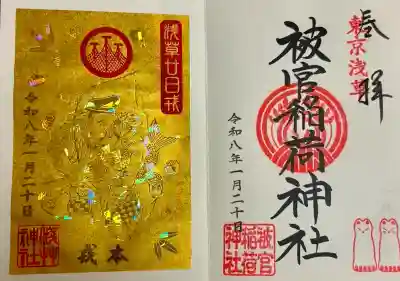 奉拝
東京浅草
被官稲荷神社
令和八年一月二十日
被官稲荷神社
浅草廿日戎
本戎
令和八年一月二十日
浅草神社